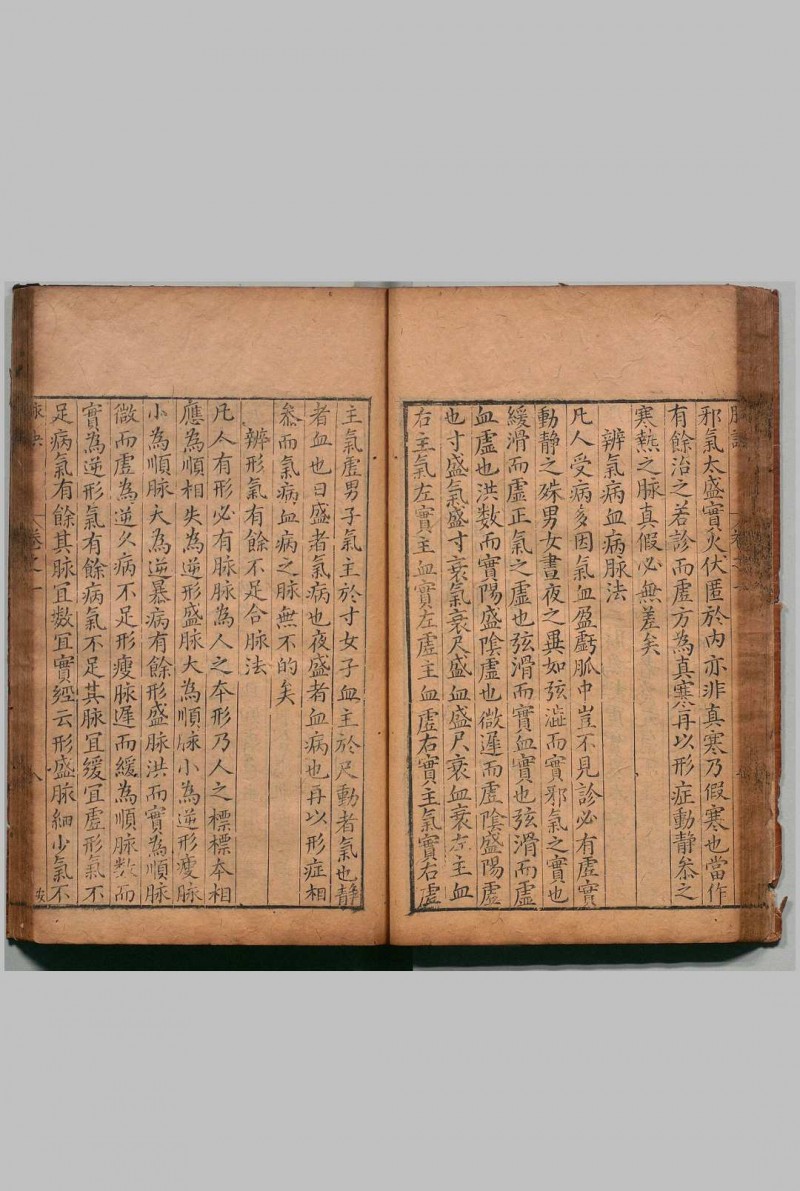 邪氣太盛實火伏匿於內亦非真寒乃假寒也當作
有餘治之若診而虛方為真寒再以形症動靜叅之
寒熱之脉真假必無差矣
辨氣病血病脉法
凡人受病多因氣血盈虧脈中豈不見診必有虛實
動靜之殊男女晝夜之異如弦澁而實邪氣之實也
緩滑而虛正氣之虛也弦滑而實血實也弦滑而虛
血虛也洪数而實陽盛陰虛也微遲而虛陰盛陽虛
也寸盛氣盛寸衰氣衰尺盛血盛尺衰血衰左主血
右主氣左實主血實左虛主血虛右實主氣實右虛
主氣虛男子氣主於寸女子血主於尺動者氣也靜
者血也日盛者氣病也夜盛者血病也再以形症相
叅而氣病血病之脉無不的矣
辨形氣有餘不足合脉法
凡人有形必有脉脉為人之本形乃人之標標本相
應為順相失為逆形盛脉大為順脉小為逆形瘦脉
小為順脉大為逆暴病有餘形盛脉洪而實為順脉
微而虛為逆久病不足形瘦脉遲而緩為順脉数而
實為逆形氣有餘病氣不足其脉宜緩宜虛形氣不
足病氣有餘其脉宜数宜實經云形盛脉細少氣不
脉訣 卷之一 八